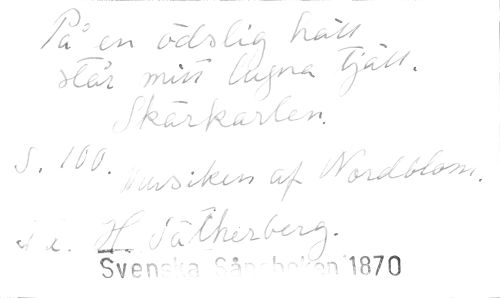 På en ödslig hätt
står mitt lugna tjäll.
Skärkarlen.
S. 100. Musiken af Nordblom.
H. Sätherberg.
Svenska Sångboken 1870